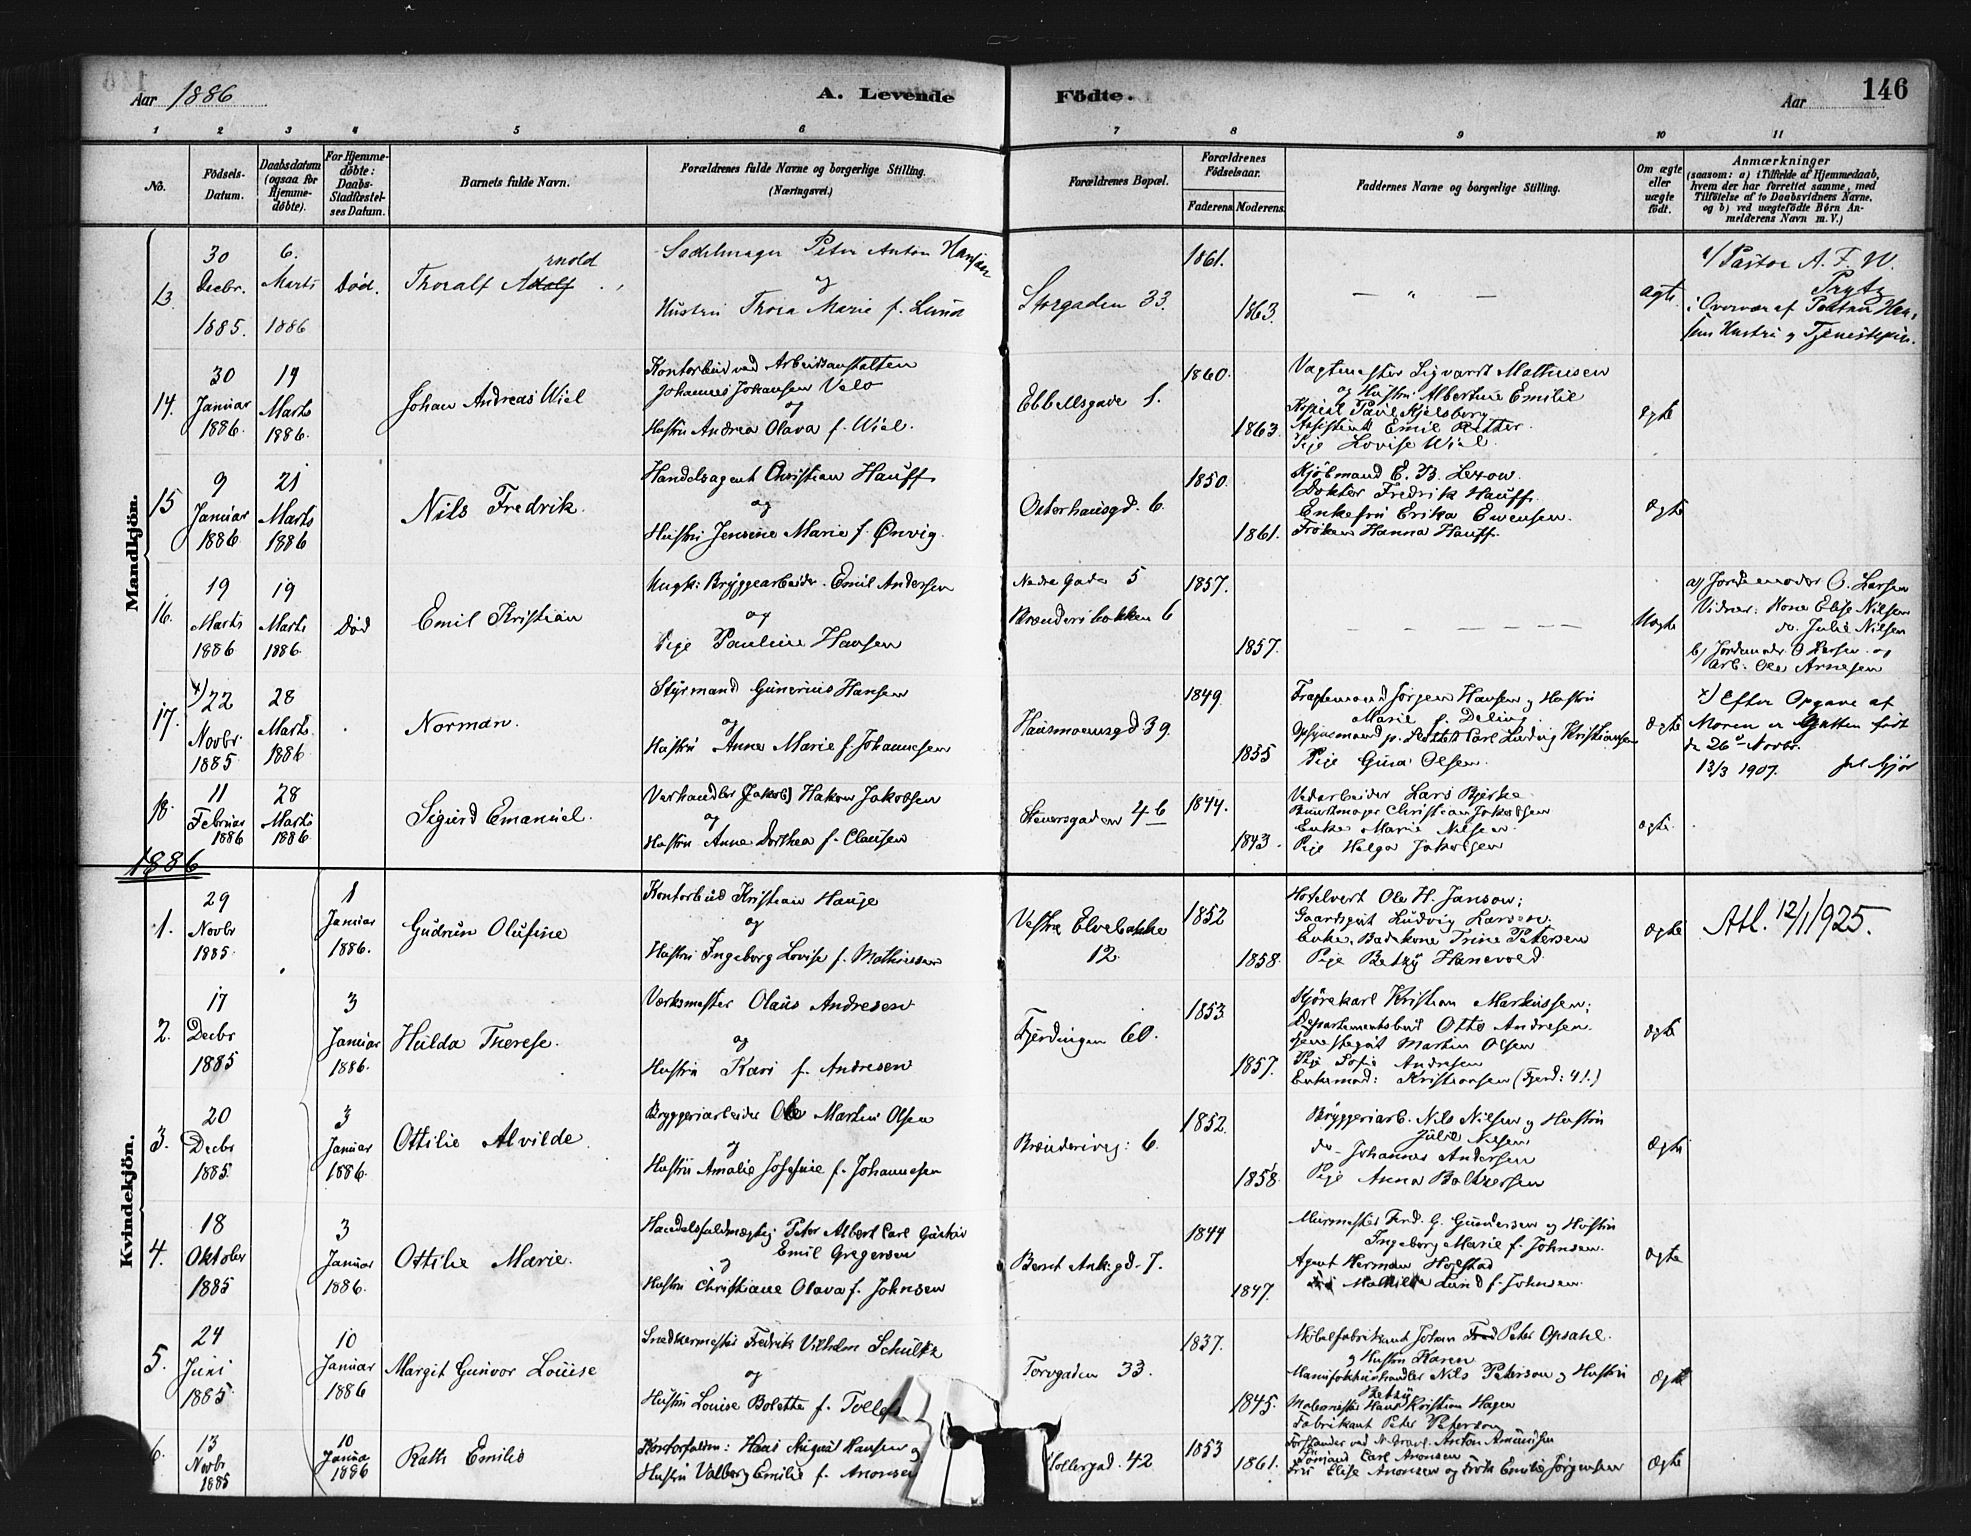 Aar 1886
A. Levende Födte.
Aar
146
1 2 3 4 5 6 7 8 9 10 11
No.
Födsels-Datum.
Daabsdatum (ogsaa for Hjemme-döbte).
For Hjemme-döbte: Daabs-Stadfæstel-ses Datum.
Barnets fulde Navn.
Forældrenes fulde Navne og borgerlige Stilling. (Næringsvei.)
Forældrenes Bopæl.
Forældrenes Födselsaar.
Faderens. Moderens.
Faddernes Navne og borgerlige Stilling.
Om ægte eller uægte födt.
Anmærkninger
(saasom: a) i Tilfælde af Hjemmedaab,
hvem der har forrettet samme, med
Tilföielse af to Daabsvidners Navne,
og b) ved uægtefödte Börn An-
melderens Navn m. V.)
Mandkjön.
13. 30 Decbr. 1885. 6. Marts 1886 Död.
Thoralf Adolf rnold
Sadelmager Peter Anton Hansen
og
Hustru Thora Marie f. Lund
Storgaden 33.
1861.
1863.
— " —
ægte
a/ Pastor A. F. W.
Prytz
i Overvær af
14. 30 Januar 1886. 19 Marts 1886.
Johan Andreas Wiel
Kontorbud ved Arbeidsanstalten
Johannes Johansen Velo
og
Hustru Andrea Olava f. Wiel.
Ebbellsgade 1.
1860.
1863.
Vagtmester Sigvardt Mathiesen
og Hustru Albertine Emilie
Kopist Paul Kjelsberg
Assistent Emil Ritter.
Pige Lovise Wiel.
ægte
15 9 Januar 1886. 21 Marts 1886
Nils Fredrik.
Handelsagent Christian Hauff
og
Hustru Jensine Marie f. Ønvig.
Osterhausgd. 6.
1850.
1861.
Kjöbmand E. B. Lexow.
Doktor Fredrik Hauff.
Enkefru Erika Evensen.
Fröken Hanna Hauff.
Ægte
16. 19 Marts 1886 19 Marts 1886. Död
Emil Kristian
Ungk: Bryggearbeider. Emil Andersen
og
Pige Pauline Hansen
Nedre Gade 5
Brænderibakken 6
1857.
1857.
Uægte
a) Jordemoder O. Larsen
Vidner: Kone Elise Nilsen
do. Julie Nilsen
b) Jordemodr. O Larsen og
Arb. Ole Arnesen
17. x) 22 Novbr 1885 28 Marts 1886
Norman.
Styrmand Gunerius Hansen
og
Hustru Anne Marie f. Johannesen
Hausmannsgd 39.
1849
1855
Fragtemand Jörgen Hansen og Hustru
Marie f. Deling.
Opsynsmand p. Slottet Carl Ludvig Kristiansen
Pige Gina Olsen.
ægte
x) Efter Opgave af
Moren er Gutten födt
de 26de Novbr.
13/3 1907.
18. 11 Februar 1886 28 Marts 1886.
Sigurd Emanuel.
Varhandler (Jakob) Hakon Jakobsen
og
Hustru Anne Dorthea f. Clausen
Steversgaden 4-6
1844.
1843.
Vedarbeider Lars Bjerke.
Buntmager Christian Jakobsen
Enke Marie Nilsen.
Pige Helga Jakobsen
ægte
1886
Kvindekjön.
1. 29 Novbr 1885. 1 Januar 1886.
Gudrun Olufine
Kontorbud Kristian Hauge
og
Hustru Ingeborg Lovise f. Mathiesen
Vestre Elvebakke
12.
1852
1858.
Hotelvert Ole H. Janson;
Gaardsgut Ludvig Larsen.
Enke, Badekone Trine Petersen
Pige Betzy Hanevold
Ægte
Atl. 12/1 1925.
2. 17 Decbr 1885 3 Januar 1886.
Hulda Therese.
Værksmester Olaus Andresen
og
Hustru Kari f. Andresen
Fjerdingen 60.
1853
1857.
Kjörekarl Kristian Markussen;
Departementsbud Otto Andresen.
Tjenestegut Martin Olsen
Pige Sofie Andresen
Enkemad: Kristiansen (Fjerd: 41.)
ægte
3. 20 Decbr 1885. 3 Januar 1886.
Ottilie Alvilde.
Bryggeriarbeider Ole Martin Olsen
og
Hustru Amalie Josefine f. Johannesen
Brænderivej: 6.
1852.
1858.
Bryggeriarb. Nils Nilsen og Hustru
Julie Nilsen
do- Johannes Andersen
Pige Anna Baltzersen
Ægte
4. 18 Oktober 1885 3 Januar 1886.
Ottilie Marie.
Handelsfuldmægtig Peter Albert Carl Gustav
Emil Gregersen
og
Hustru Christiane Olava f. Johnsen
Bernt Anksgd. 7.
1844
1847.
Murmester Ferd. G. Gundersen og Hustru
Ingeborg Marie f. Johnsen.
Agent Herman Holstad
Mathilde Lund f. Johnsen.
ægte
5. 24 Juni 1885. 10 Januar 1886
Margit Gunvor Louise
Snedkermester Fredrik Vilhelm Schultz
og
Hustru Louise Bolette f. Tollefs
Torvgaden 33.
1837.
1845.
Möbelfabrikant Johan Fred Peter Opsahl.
og Hustru Karen
Manufakturhandler Nils Peterson og Hustru
Betzy
Malermester Hans Kristian Hagen
Fabrikant Peter Peterson
Ægte
6. 13 Novbr 1885 10 Januar 1886
Ruth Emilie
Kontorfuldm: Hans August Hansen og
Hustru Valborg Emilie f. Anonsen
Möllergad. 42
1853
1861.
Anton Amundsen
Carl Anonsen
Fru Elise Anonsen og Frök Emilie Jörgensen
Ægte